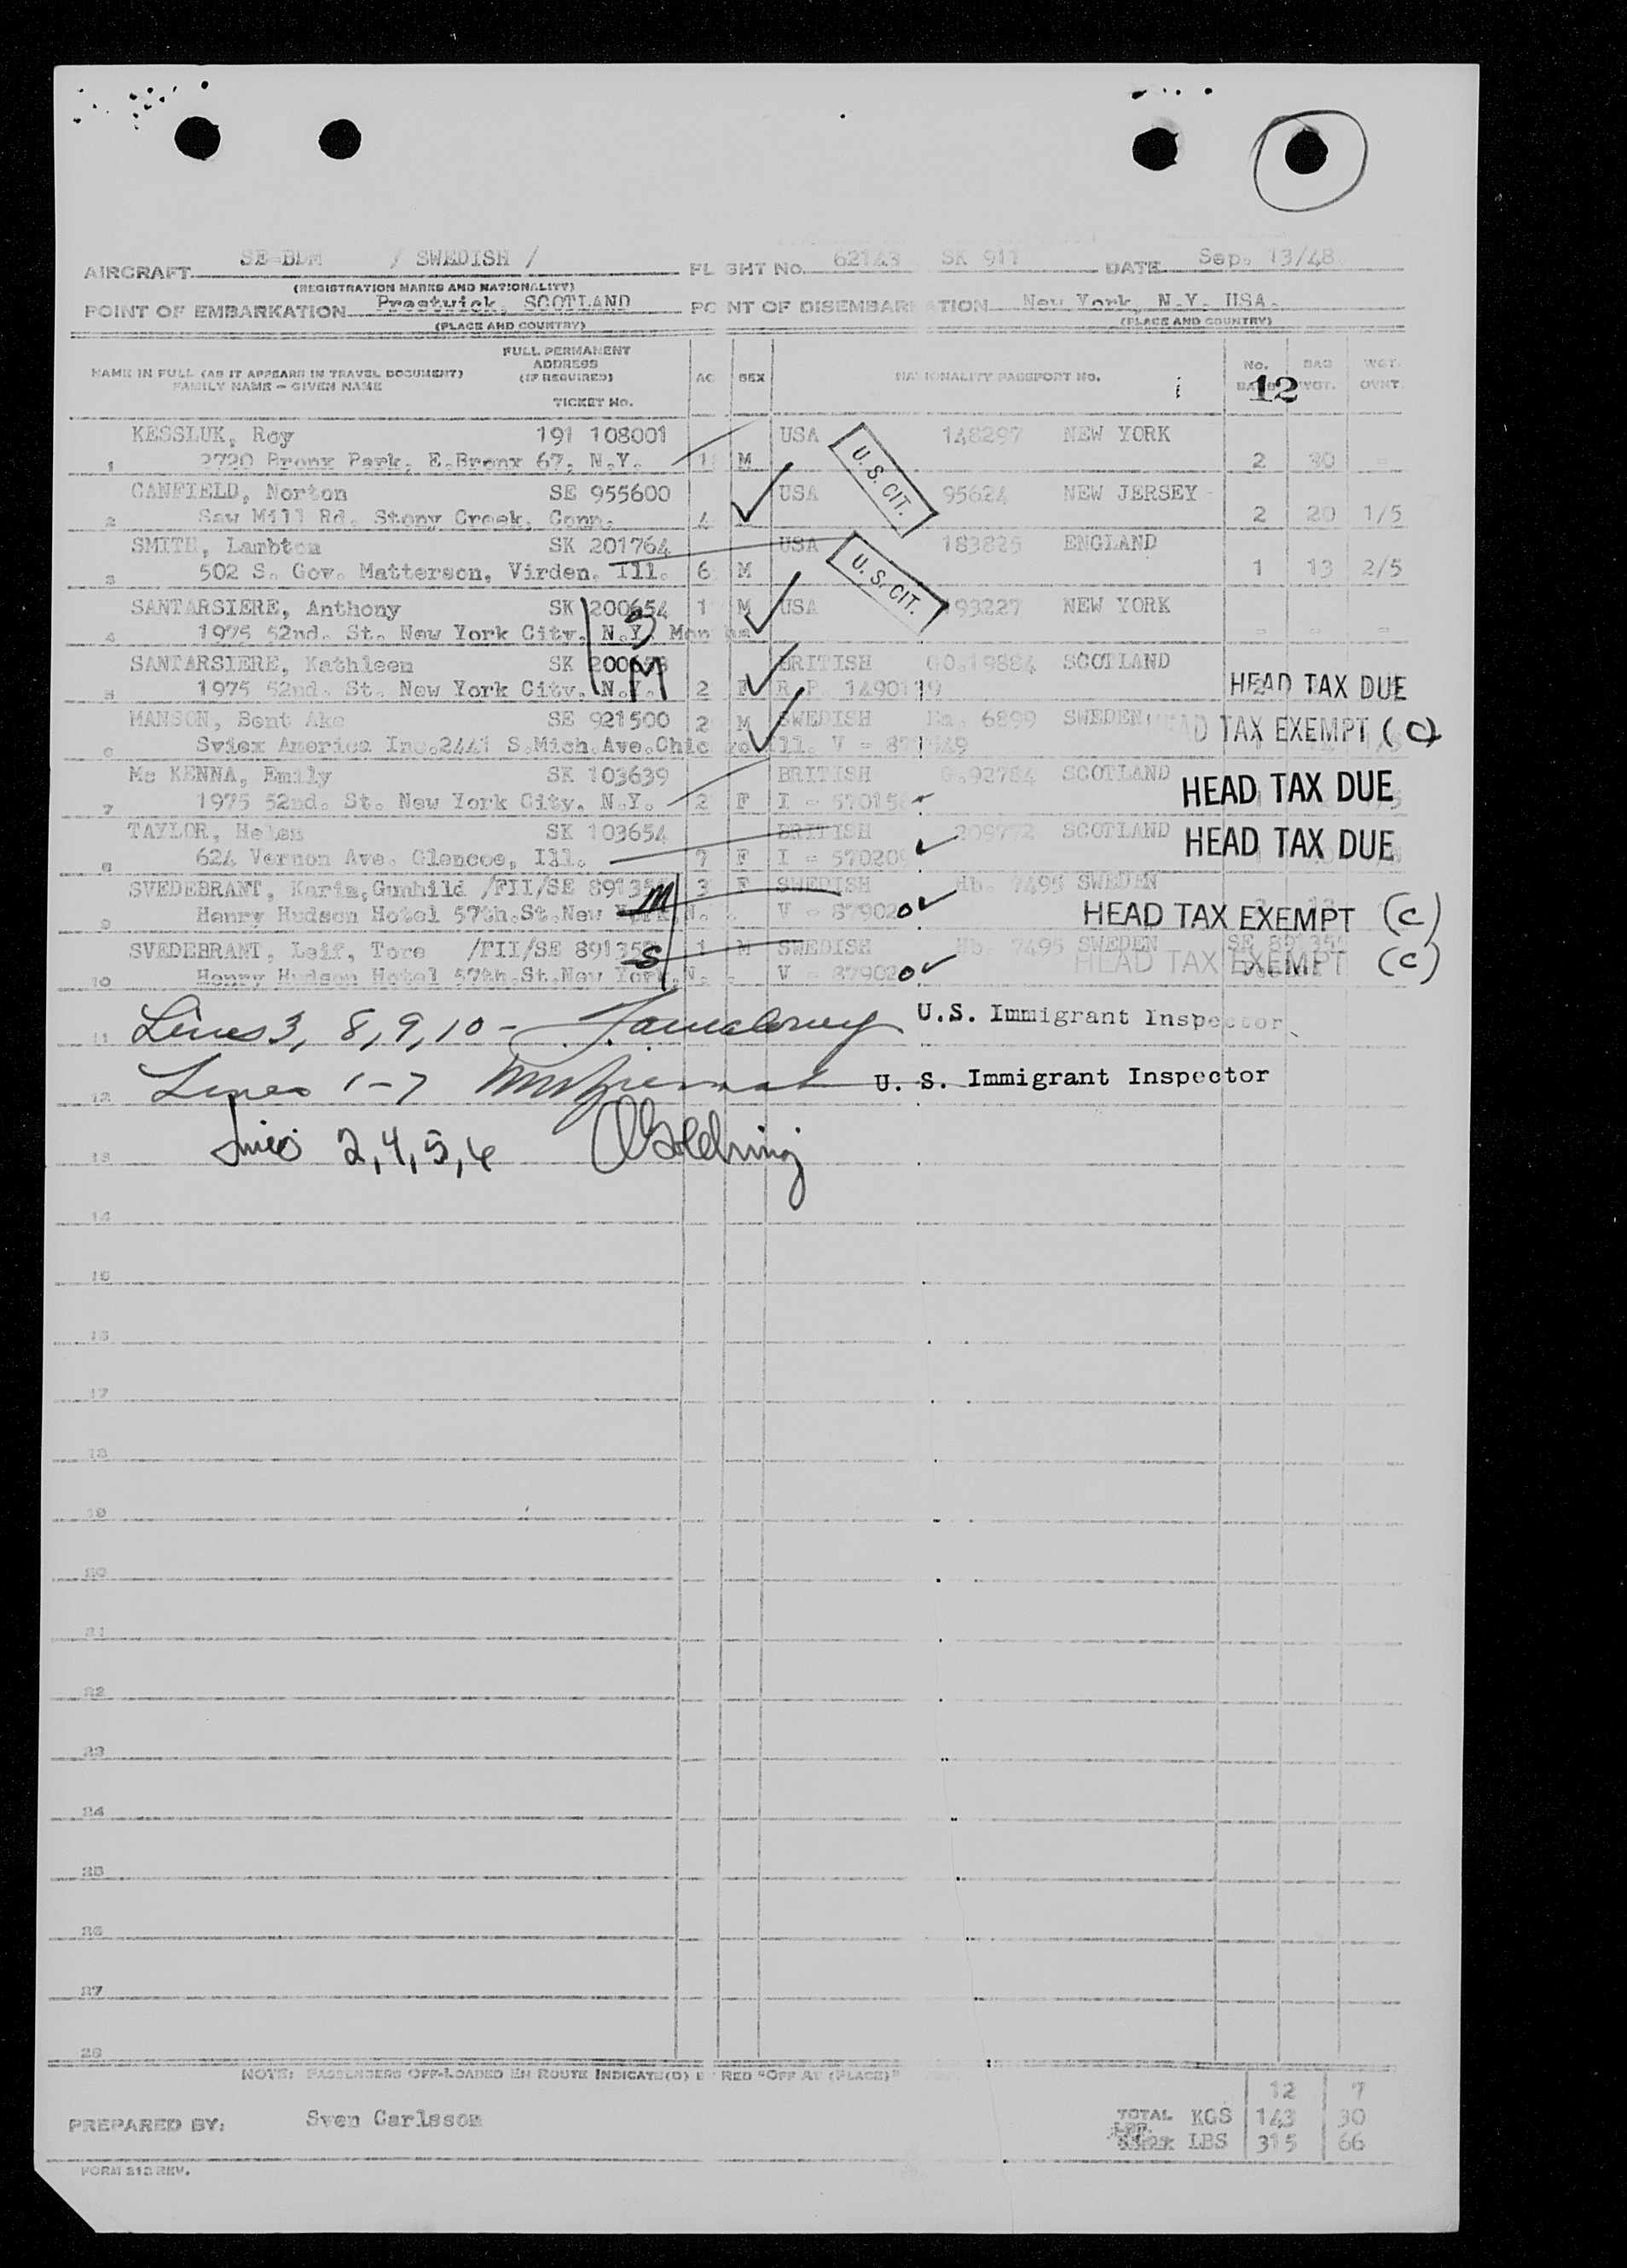 AIRCRAFT SE-BDM / SWEDISH / FLIGHT No. 62143 SK 911 DATE Sep. 13/48
(REGISTRATION MARKS AND NATIONALITY)
POINT OF EMBARKATION Prestwick, SCOTLAND POINT OF DISEMBARKATION New York, N.Y. USA.
(PLACE AND COUNTRY) (PLACE AND COUNTRY)
FULL PERMANENT
ADDRESS
NAME IN FULL (AS IT APPEARS IN TRAVEL DOCUMENT) (IF REQUIRED) AG SEX NATIONALITY PASSPORT No. No. BAG WGT.
FAMILY NAME - GIVEN NAME 12 WGT. OVWT.
TICKET No.
KESSLUK, Roy 191 108001 USA 148297 NEW YORK
1 2720 Bronx Park, E.Bronx 67, N.Y. 1 M 2 30 -
CANFIELD, Norton SE 955600 USA 95624 NEW JERSEY
2 Saw Mill Rd. Stony Creek, Conn. 4 2 20 1/5
SMITH, Lambton SK 201764 USA 183825 ENGLAND
3 502 S. Gov. Matterson, Virden. Ill. 6 M 1 13 2/5
U. S. CIT.
U. S. CIT.
SANTARSIERE, Anthony SK 200654 1 M USA 93227 NEW YORK
4 1975 52nd. St. New York City. N.Y. - - -
S
SANTARSIERE, Kathleen SK BRITISH 19884 SCOTLAND
5 1975 52nd. St. New York City. N.Y. 2 F R.P. 1490119 HEAD TAX DUE
M
MANSON, Bent Ake SE 921500 2 M SWEDISH 6899 SWEDEN HEAD TAX EXEMPT (C)
6 Sviex America Inc.2441 S.Mich.Ave. Ill. V -
Mc KENNA, Emily SK 103639 BRITISH SCOTLAND
7 1975 52nd. St. New York City. N.Y. 2 F I - HEAD TAX DUE
TAYLOR, Helen SK 103654 BRITISH SCOTLAND
8 624 Vernon Ave. Glencoe, Ill. 7 F I - HEAD TAX DUE
SVEDEBRANT, Karin,Gunhild /FII/SE 3 F SWEDISH Hb. 7495 SWEDEN
9 Henry Hudson Hotel 57th.St.New York,N. V - 879020 HEAD TAX EXEMPT (C)
M
SVEDEBRANT, Leif, Tore /FII/SE 1 M SWEDISH Hb. 7495 SWEDEN
10 Henry Hudson Hotel 57th.St.New York,N. V - 879020 HEAD TAX EXEMPT (C)
S
11 Lines 3, 8, 9, 10 - U.S. Immigrant Inspector
12 Lines 1-7 U. S. Immigrant Inspector
13 Lines 2, 4, 5, 6 Goldring
14
15
16
17
18
19
20
21
22
23
24
25
26
27
28
NOTE: PASSENGERS OFF-LOADED EN ROUTE INDICATE(D) RED "OFF AT (PLACE)"
12 7
PREPARED BY: Sven Carlsson TOTAL KGS 143 30
LBS 315 66
FORM 212 REV.